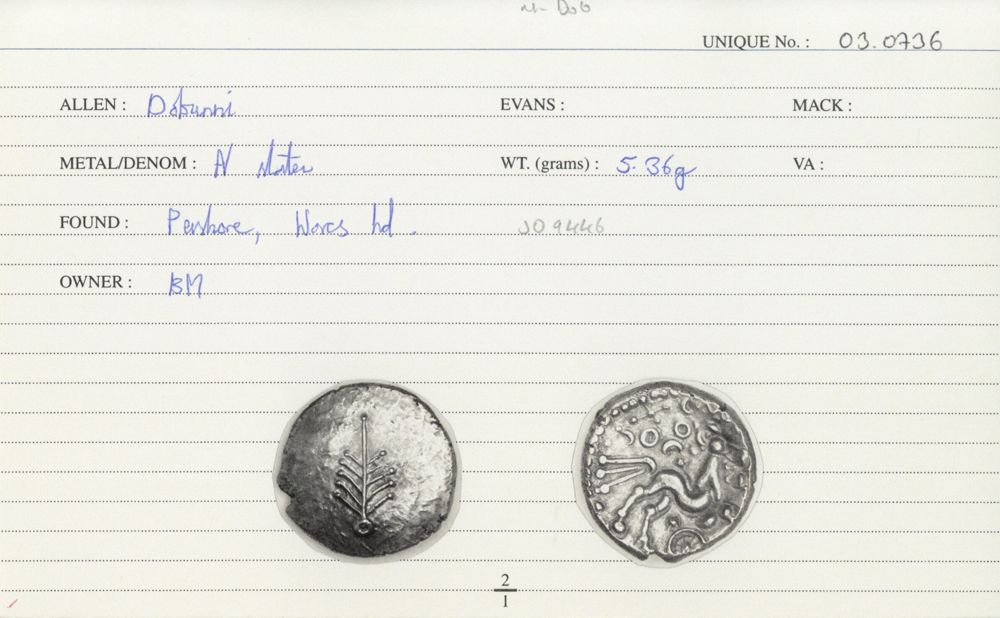 Dob
UNIQUE No. : 03.0736
ALLEN : Dobunni EVANS : MACK :
METAL/DENOM : N Stater WT. (grams) : 5.36g VA :
FOUND : Pershore, Worcs hd. SO 9446
OWNER : BM
2
1